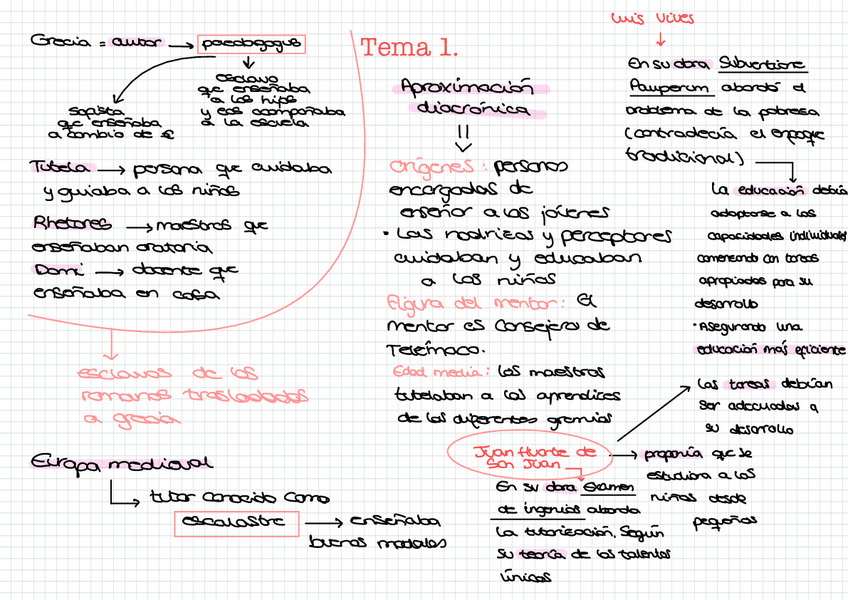 Grecia = autor → paedagogus
esclavo
que enseñaba
a los hijos
y los acompañaba
a la escuela
sofista
que enseñaba
a cambio de €
Tutela → persona que cuidaba
y guiaba a los niños
Rhetores → maestros que
enseñaban oratoria
Domi → docente que
enseñaba en casa
esclavos de los
romanos trasladados
a grecia
Europa medieval
tutor conocido como
escolastre → enseñaba
buenos modales
Tema 1.
Aproximación
diacrónica
Orígenes: personas
encargadas de
enseñar a los jóvenes
• Las nodrizas y perceptores
cuidaban y educaban
a los niños
Figura del mentor: El
mentor es consejero de
Telémaco.
Edad media: los maestros
tutelaban a los aprendices
de los diferentes gremios
Juan Huarte de
San Juan
En su obra Examen
de ingenios aborda
la tutorización, según
su teoría de los talentos
únicos
→ proponía que se
estudiara a los
niños desde
pequeños
Las tareas debían
ser adecuadas a
su desarrollo
Luis Vives
En su obra Subventione
Pauperum abordó el
problema de la pobreza
(contradecía el enfoque
tradicional)
La educación debía
adaptarse a las
capacidades individuales
comenzando con tareas
apropiadas para su
desarrollo
• Asegurando una
educación más eficiente